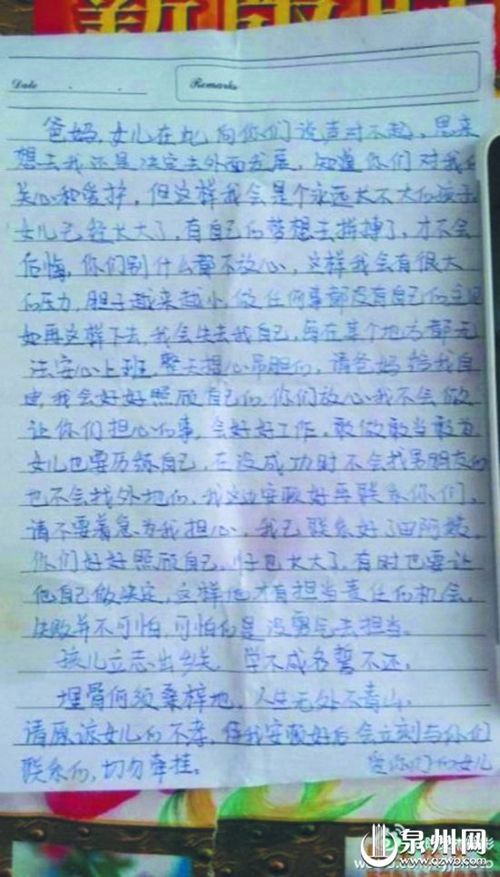 Date
Remarks
爸妈,女儿在此向你们说声对不起,思来
想去我还是决定去外面发展,知道你们对我的
关心和爱护,但这样我会是个永远长不大的孩子,
女儿已经长大了,有自己的梦想去拼搏了,才不会
后悔,你们别什么都不放心,这样我会有很大
的压力,胆子越来越小,做任何事都没有自己的主见
如再这样下去,我会失去我自己,每在某个地方都无
法安心上班,整天提心吊胆的,请爸妈给我自
由,我会好好照顾自己的,你们放心我不会做
让你们担心的事,会好好工作,敢做敢当敢为
女儿也要历练自己,在没成功时不会找男朋友的
也不会找外地的,我这边安顿好再联系你们,
请不要着急为我担心,我已联系好了
你们好好照顾自己,也长大了,有时也要让
他自己做决定,这样他才有担当责任的机会,
失败并不可怕,可怕的是没勇气去担当。
孩儿立志出乡关,学不成名誓不还,
埋骨何须桑梓地,人生无处不青山,
请原谅女儿的不孝,待我安顿好后会立刻与你们
联系的,切勿牵挂。
爱你们的女儿
泉州网
www.qzwb.com